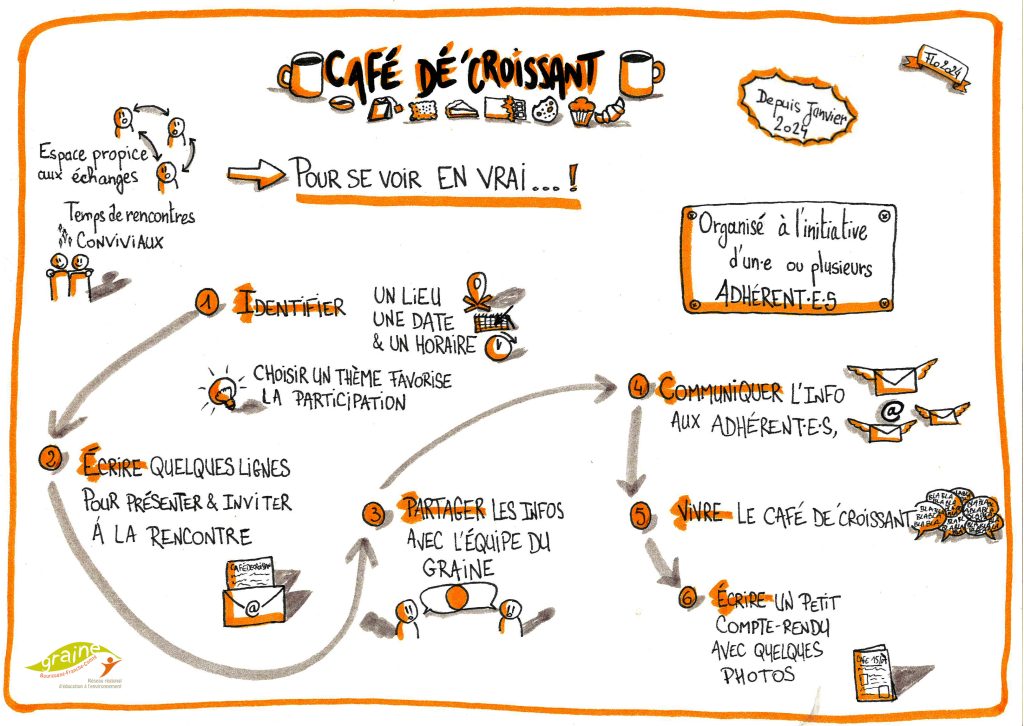 CAFÉ DÉ'CROISSANT
Flo 2024
Depuis Janvier
2024
Espace propice
aux échanges
POUR SE VOIR EN VRAI...!
Temps de rencontres
CONVIVIAUX
Organisé à l'initiative
d'un·e ou plusieurs
ADHÉRENT·E·S
1 IDENTIFIER
UN LIEU
UNE DATE
& UN HORAIRE
CHOISIR UN THÈME FAVORISE
LA PARTICIPATION
2 ÉCRIRE QUELQUES LIGNES
POUR PRÉSENTER & INVITER
À LA RENCONTRE
CAFÉDÉCROISSANT
@
3 PARTAGER LES INFOS
AVEC L'ÉQUIPE DU
GRAINE
4 COMMUNIQUER L'INFO
AUX ADHÉRENT·E·S,
@
5 VIVRE LE CAFÉ DÉ'CROISSANT
BLA BLA
BLA BLA
BLA BLA
6 ÉCRIRE UN PETIT
COMPTE-RENDU
AVEC QUELQUES
PHOTOS
graine
Bourgogne-Franche-Comté
Réseau régional
d'éducation à l'environnement